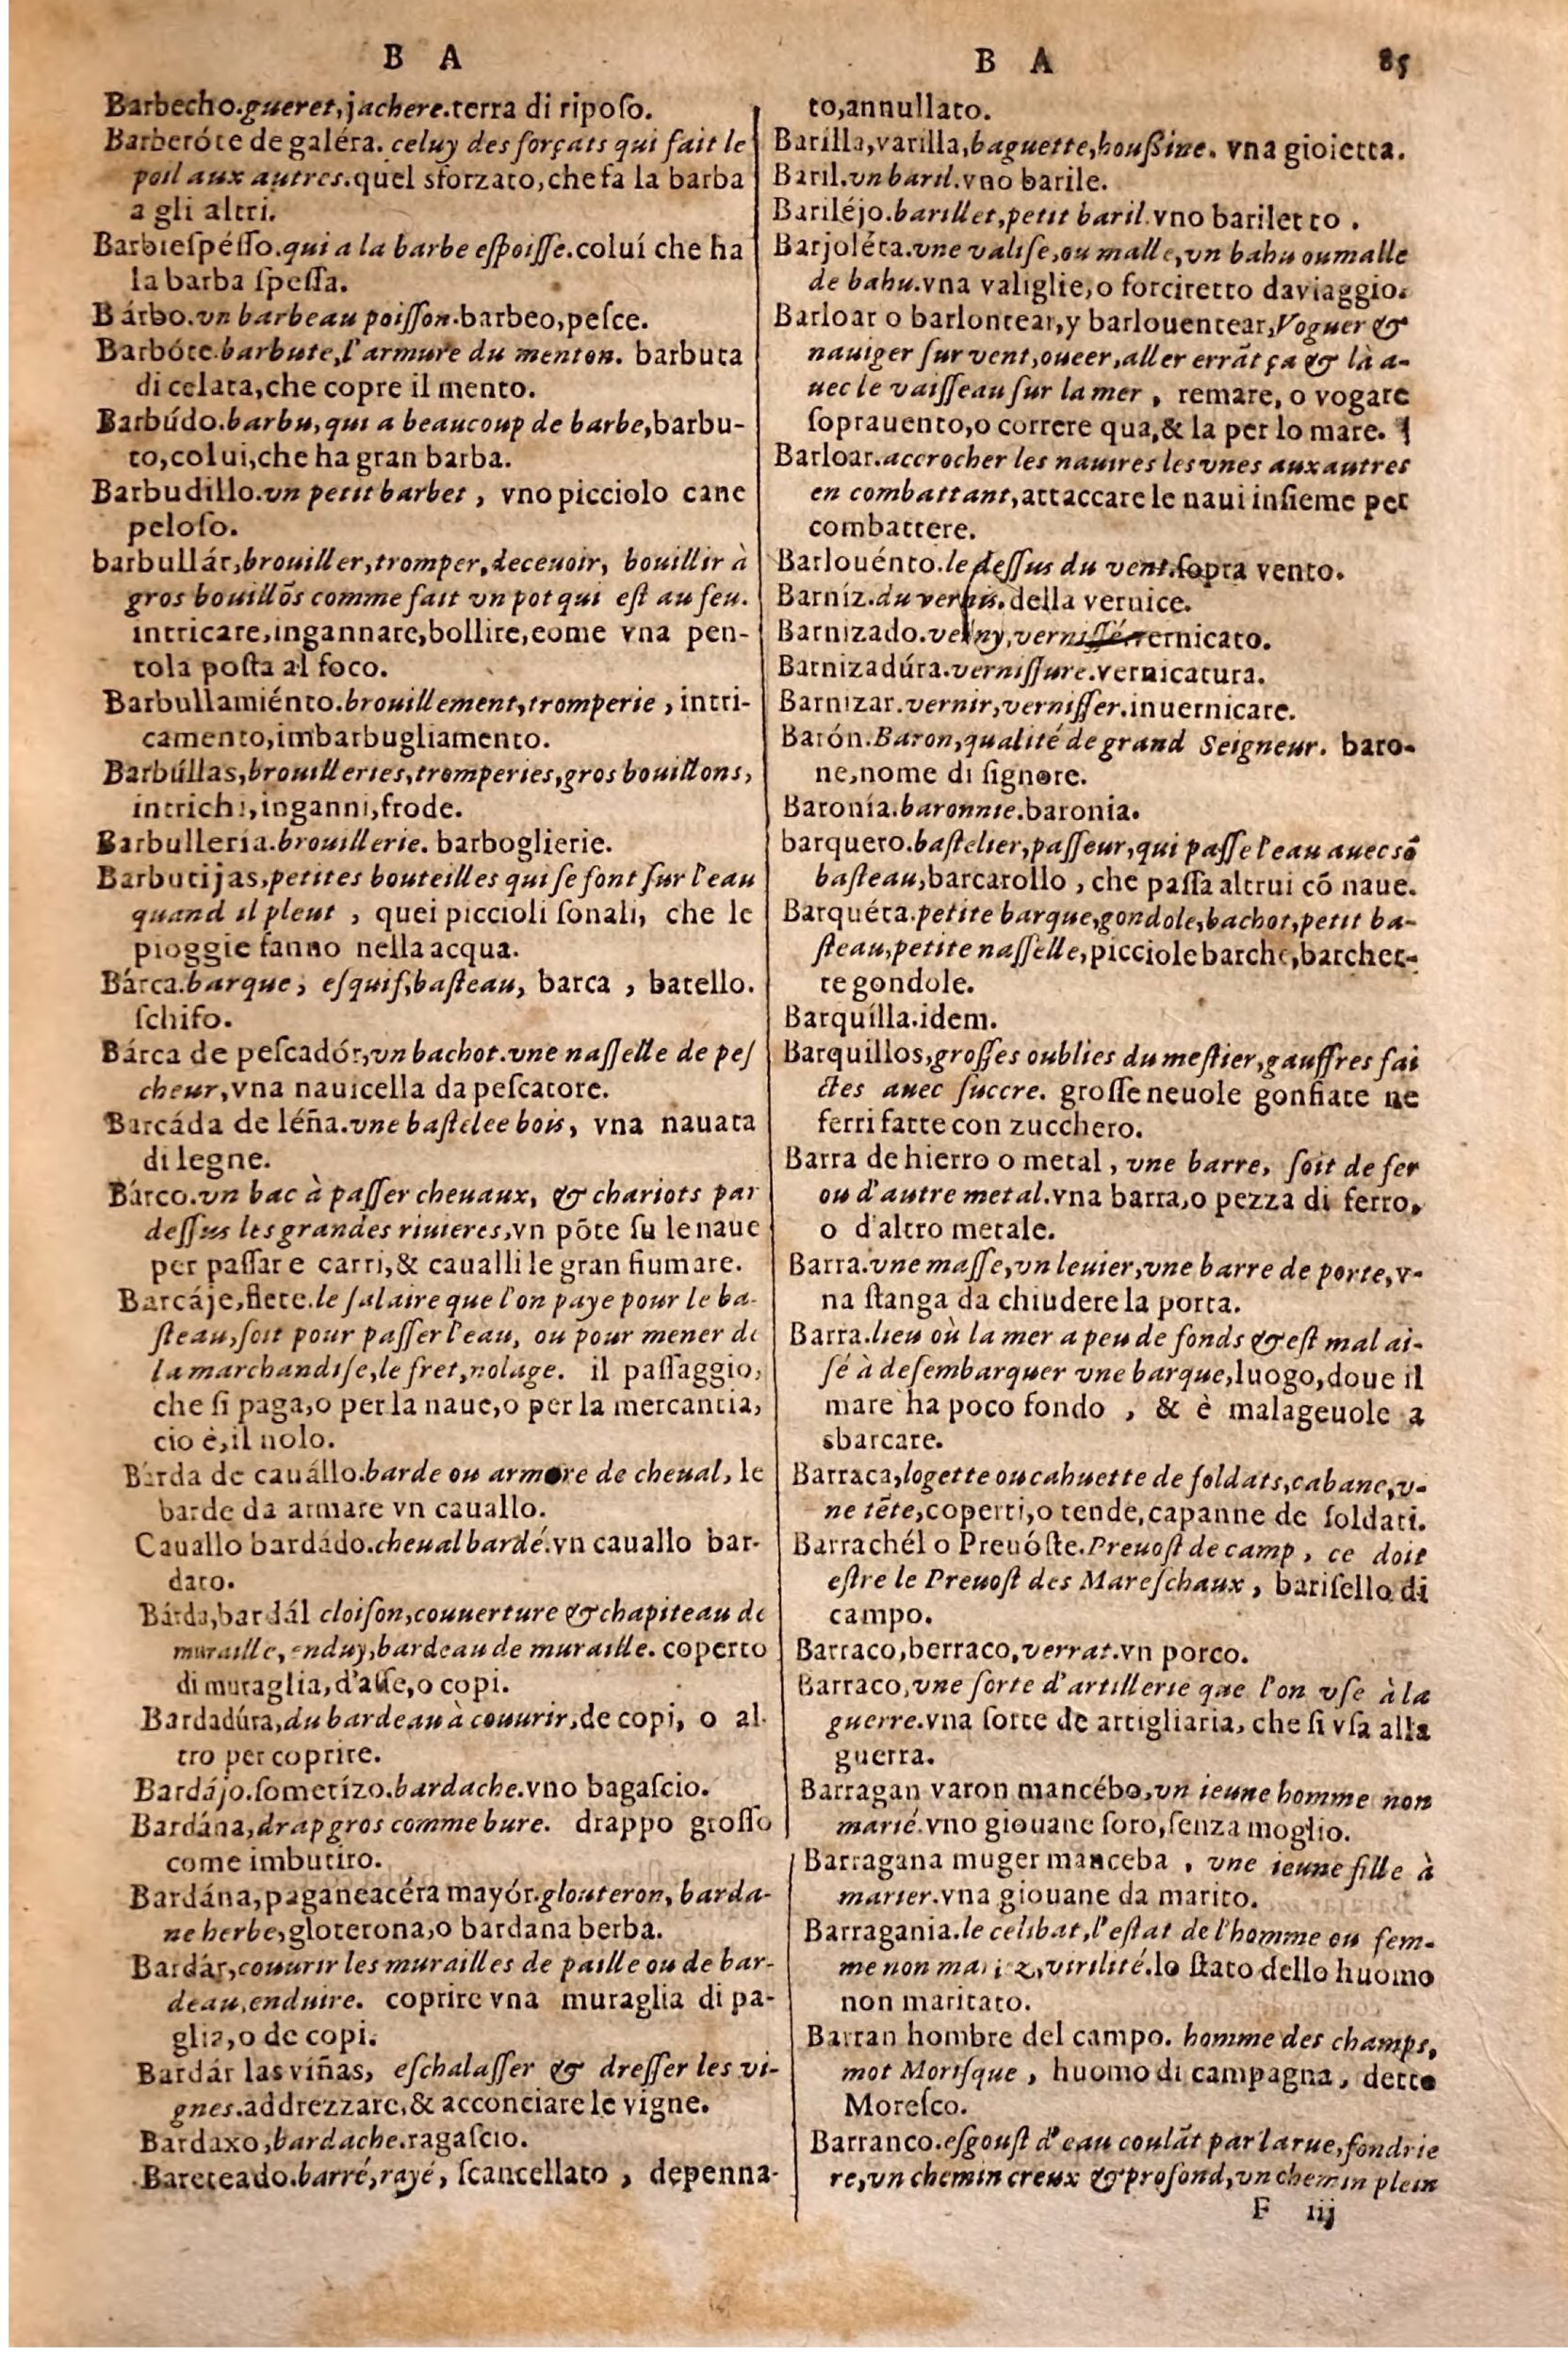 B A
Barbecho.gueret,jachere.terra di riposo.
Barberóte de galéra. celuy des forçats qui fait le
poil aux autres.quel sforzato,che fa la barba
a gli altri.
Barbiespésso.qui a la barbe espoisse.coluí che ha
la barba spessa.
Bárbo.vn barbeau poisson.barbeo,pesce.
Barbóte.barbute,l'armure du menton. barbuta
di celata,che copre il mento.
Barbúdo.barbu,qui a beaucoup de barbe,barbu-
to,colui,che ha gran barba.
Barbudillo.vn petit barbet , vno picciolo cane
peloso.
barbullár,brouiller,tromper,deceuoir, bouillir à
gros bouillõs comme fait vn pot qui est au feu.
intricare,ingannare,bollire,eome vna pen-
tola posta al foco.
Barbullamiénto.brouillement,tromperie , intri-
camento,imbarbugliamento.
Barbúllas,brouilleries,tromperies,gros bouillons,
intrichi,inganni,frode.
Barbulleria.brouillerie. barboglierie.
Barbutijas,petites bouteilles qui se font sur l'eau
quand il pleut , quei piccioli sonali, che le
pioggie fanno nella acqua.
Bárca.barque, esquif,basteau, barca , batello.
schifo.
Bárca de pescadór,vn bachot.vne nasselle de pes
cheur,vna nauicella da pescatore.
Barcáda de léña.vne bastelee bois, vna nauata
di legne.
Bárco.vn bac à passer cheuaux, & chariots par
dessus les grandes riuieres,vn põte su le naue
per passar e carri,& caualli le gran fiumare.
Barcáje,flete.le salaire que l'on paye pour le ba-
steau,soit pour passer l'eau, ou pour mener de
la marchandise,le fret,nolage. il passaggio,
che si paga,o per la naue,o per la mercantia,
cio è,il nolo.
Bárda de cauállo.barde ou armore de cheual, le
barde da armare vn cauallo.
Cauallo bardádo.cheual bardé.vn cauallo bar-
dato.
Bárda,bardál cloison,couuerture & chapiteau de
muraille, enduy,bardeau de muraille. coperto
di muraglia,d'asse,o copi.
Bardadúra,du bardeau à couurir,de copi, o al-
tro per coprire.
Bardájo.sometízo.bardache.vno bagascio.
Bardána,drap gros comme bure. drappo grosso
come imbutiro.
Bardána,paganeacéra mayór.glouteron, barda-
ne herbe,gloterona,o bardana berba.
Bardár,couurir les murailles de paille ou de bar-
deau,enduire. coprire vna muraglia di pa-
glia,o de copi.
Bardár las viñas, eschalasser & dresser les vi-
gnes.addrezzare,& acconciare le vigne.
Bardaxo,bardache.ragascio.
Bareteado.barré,rayé, scancellato , depenna-
B A 85
to,annullato.
Barílla,varilla,baguette,houßine. vna gioietta.
Baril.vn baril.vno barile.
Bariléjo.barillet,petit baril.vno bariletto .
Barjoléta.vne valise,ou malle,vn bahu ou malle
de bahu.vna valiglie,o forciretto da viaggio.
Barloar o barlontear,y barlouentear,Voguer &
nauiger sur vent,oueer,aller errãt ça & là a-
uec le vaisseau sur la mer , remare, o vogare
soprauento,o correre qua,& la per lo mare. ¶
Barloar.accrocher les nauires les vnes aux autres
en combattant,attaccare le naui insieme per
combattere.
Barlouénto.le dessus du vent.sopra vento.
Barníz.du vernis.della vernice.
Barnizado.verny,vernissé.vernicato.
Barnizadúra.vernissure.vernicatura.
Barnizar.vernir,vernisser.inuernicare.
Barón.Baron,qualité de grand Seigneur. baro-
ne,nome di signore.
Baronía.baronnie.baronia.
barquero.bastelier,passeur,qui passe l'eau auec sõ
basteau,barcarollo , che passa altrui cõ naue.
Barquéta.petite barque,gondole,bachot,petit ba-
steau,petite nasselle,picciole barche,barchet-
te gondole.
Barquílla.idem.
Barquillos,grosses oublies du mestier,gauffres fai
ctes auec succre. grosse neuole gonfiate ne
ferri fatte con zucchero.
Barra de hierro o metal , vne barre, soit de fer
ou d'autre metal.vna barra,o pezza di ferro,
o d'altro metale.
Barra.vne masse,vn leuier,vne barre de porte,v-
na stanga da chiudere la porta.
Barra.lieu où la mer a peu de fonds & est mal ai-
sé à desembarquer vne barque,luogo,doue il
mare ha poco fondo , & è malageuole a
sbarcare.
Barraca,logette ou cahuette de soldats,cabane,v-
ne tẽte,coperti,o tende,capanne de soldati.
Barrachél o Preuóste.Preuost de camp , ce doit
estre le Preuost des Mareschaux , barisello di
campo.
Barraco,berraco,verrat.vn porco.
Barraco,vne sorte d'artillerie que l'on vse à la
guerre.vna sorte de artigliaria, che si vsa alla
guerra.
Barragan varon mancébo,vn ieune homme non
marié.vno giouane soro,senza moglio.
Barragana muger manceba , vne ieune fille à
marier.vna giouane da marito.
Barragania.le celibat,l'estat de l'homme ou fem-
me non mariez,virilité.lo stato dello huomo
non maritato.
Barran hombre del campo. homme des champs,
mot Morisque , huomo di campagna, detto
Moresco.
Barranco.esgoust d'eau coulãt par la rue,fondrie
re,vn chemin creux & profond,vn chemin plein
F iij